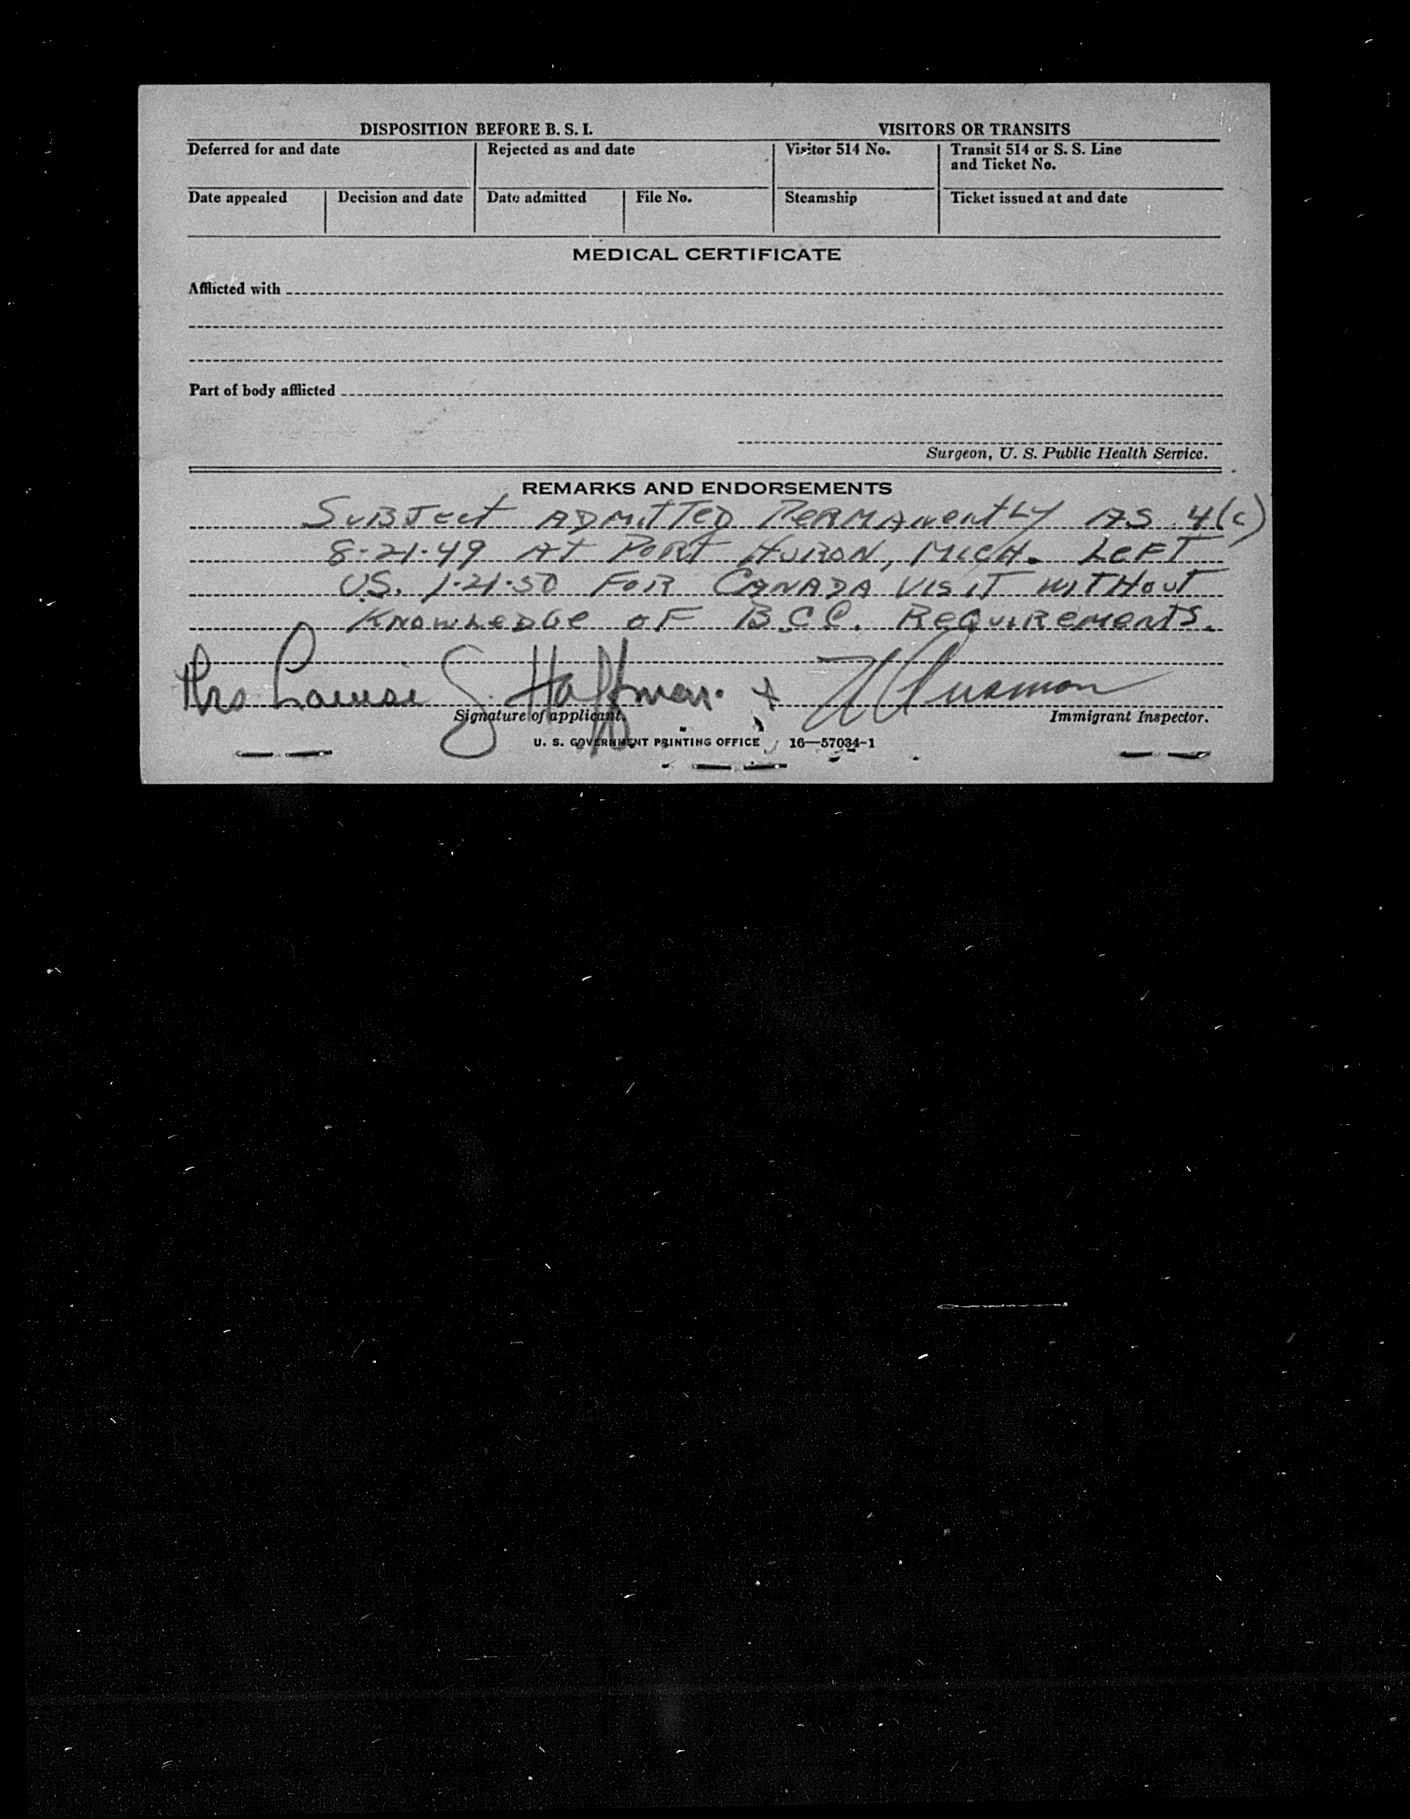 DISPOSITION BEFORE B. S. I.
VISITORS OR TRANSITS
Deferred for and date
Rejected as and date
Visitor 514 No.
Transit 514 or S. S. Line
and Ticket No.
Date appealed
Decision and date
Date admitted
File No.
Steamship
Ticket issued at and date
MEDICAL CERTIFICATE
Afflicted with
Part of body afflicted
Surgeon, U. S. Public Health Service.
REMARKS AND ENDORSEMENTS
SUBJECT ADMITTED PERMANENTLY AS 4(c)
8-21-49 AT PORT HURON, MICH. LEFT
US. 1-21-50 FOR CANADA VISIT WITHOUT
KNOWLEDGE OF B.C.C. REQUIREMENTS.
Mrs Louise G. Hoffman.
Signature of applicant.
Immigrant Inspector.
U. S. GOVERNMENT PRINTING OFFICE 16—57034-1